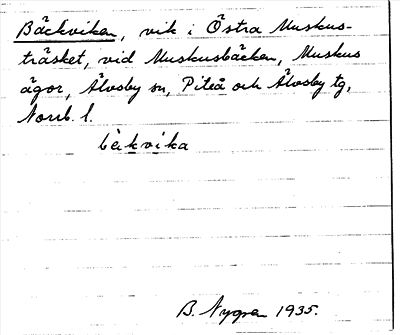 Bäckviken, vik i Östra Muskus-
träsket, vid Muskusbäcken, Muskus
ägor, Älvsby sn, Piteå och Älvsby tg,
Norrb. l.
bèkvika
B. Nygren 1935.